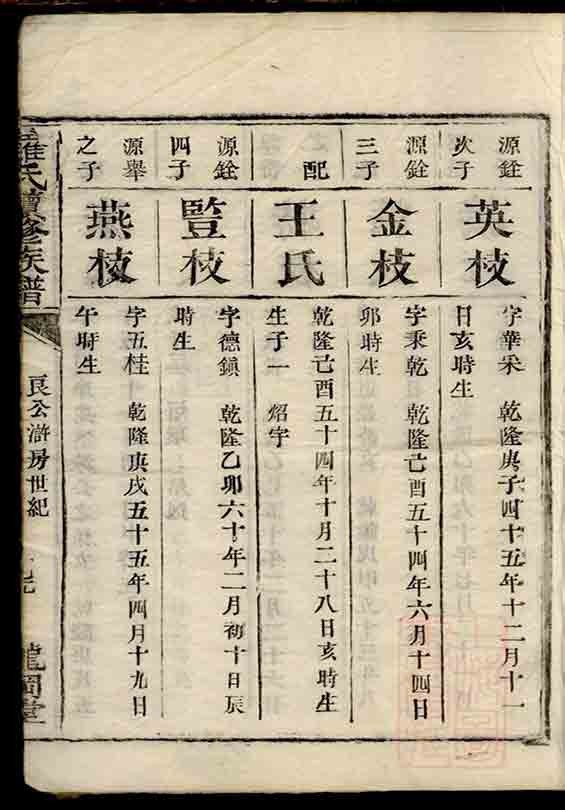 源銓
次子
英枝
字華采 乾隆庚子四十五年十二月十一
日亥時生
源銓
三子
金枝
字秉乾 乾隆己酉五十四年六月十四日
卯時生
配
王氏
乾隆己酉五十四年十月二十八日亥時生
生子一 炤宇
源銓
四子
豎枝
字德鎮 乾隆乙卯六十年二月初十日辰
時生
源舉
之子
燕枝
字五桂 乾隆庚戌五十五年四月十九日
午時生
羅氏續修族譜
良公滸房世紀
龍岡堂